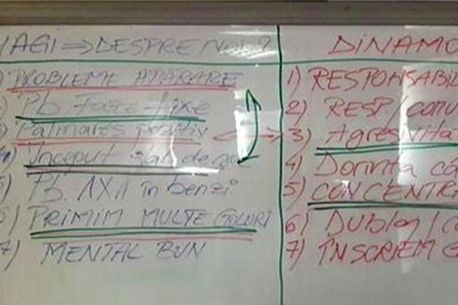 HAGI ⇒ DESPRE NOI?
PROBLEME APARARE
Pb. faze fixe
Palmares pozitiv
Inceput slab de
5) Pb. 1X1 in benzi
6) PRIMIM MULTE GOLURI
7) MENTAL BUN
DINAMO
1) RESPONSABIL
2) RESP/comu
3) Agresivita
4) Dorinta ca
5) CONCENTR
6) Dublaj/co
7) INSCRIEM G